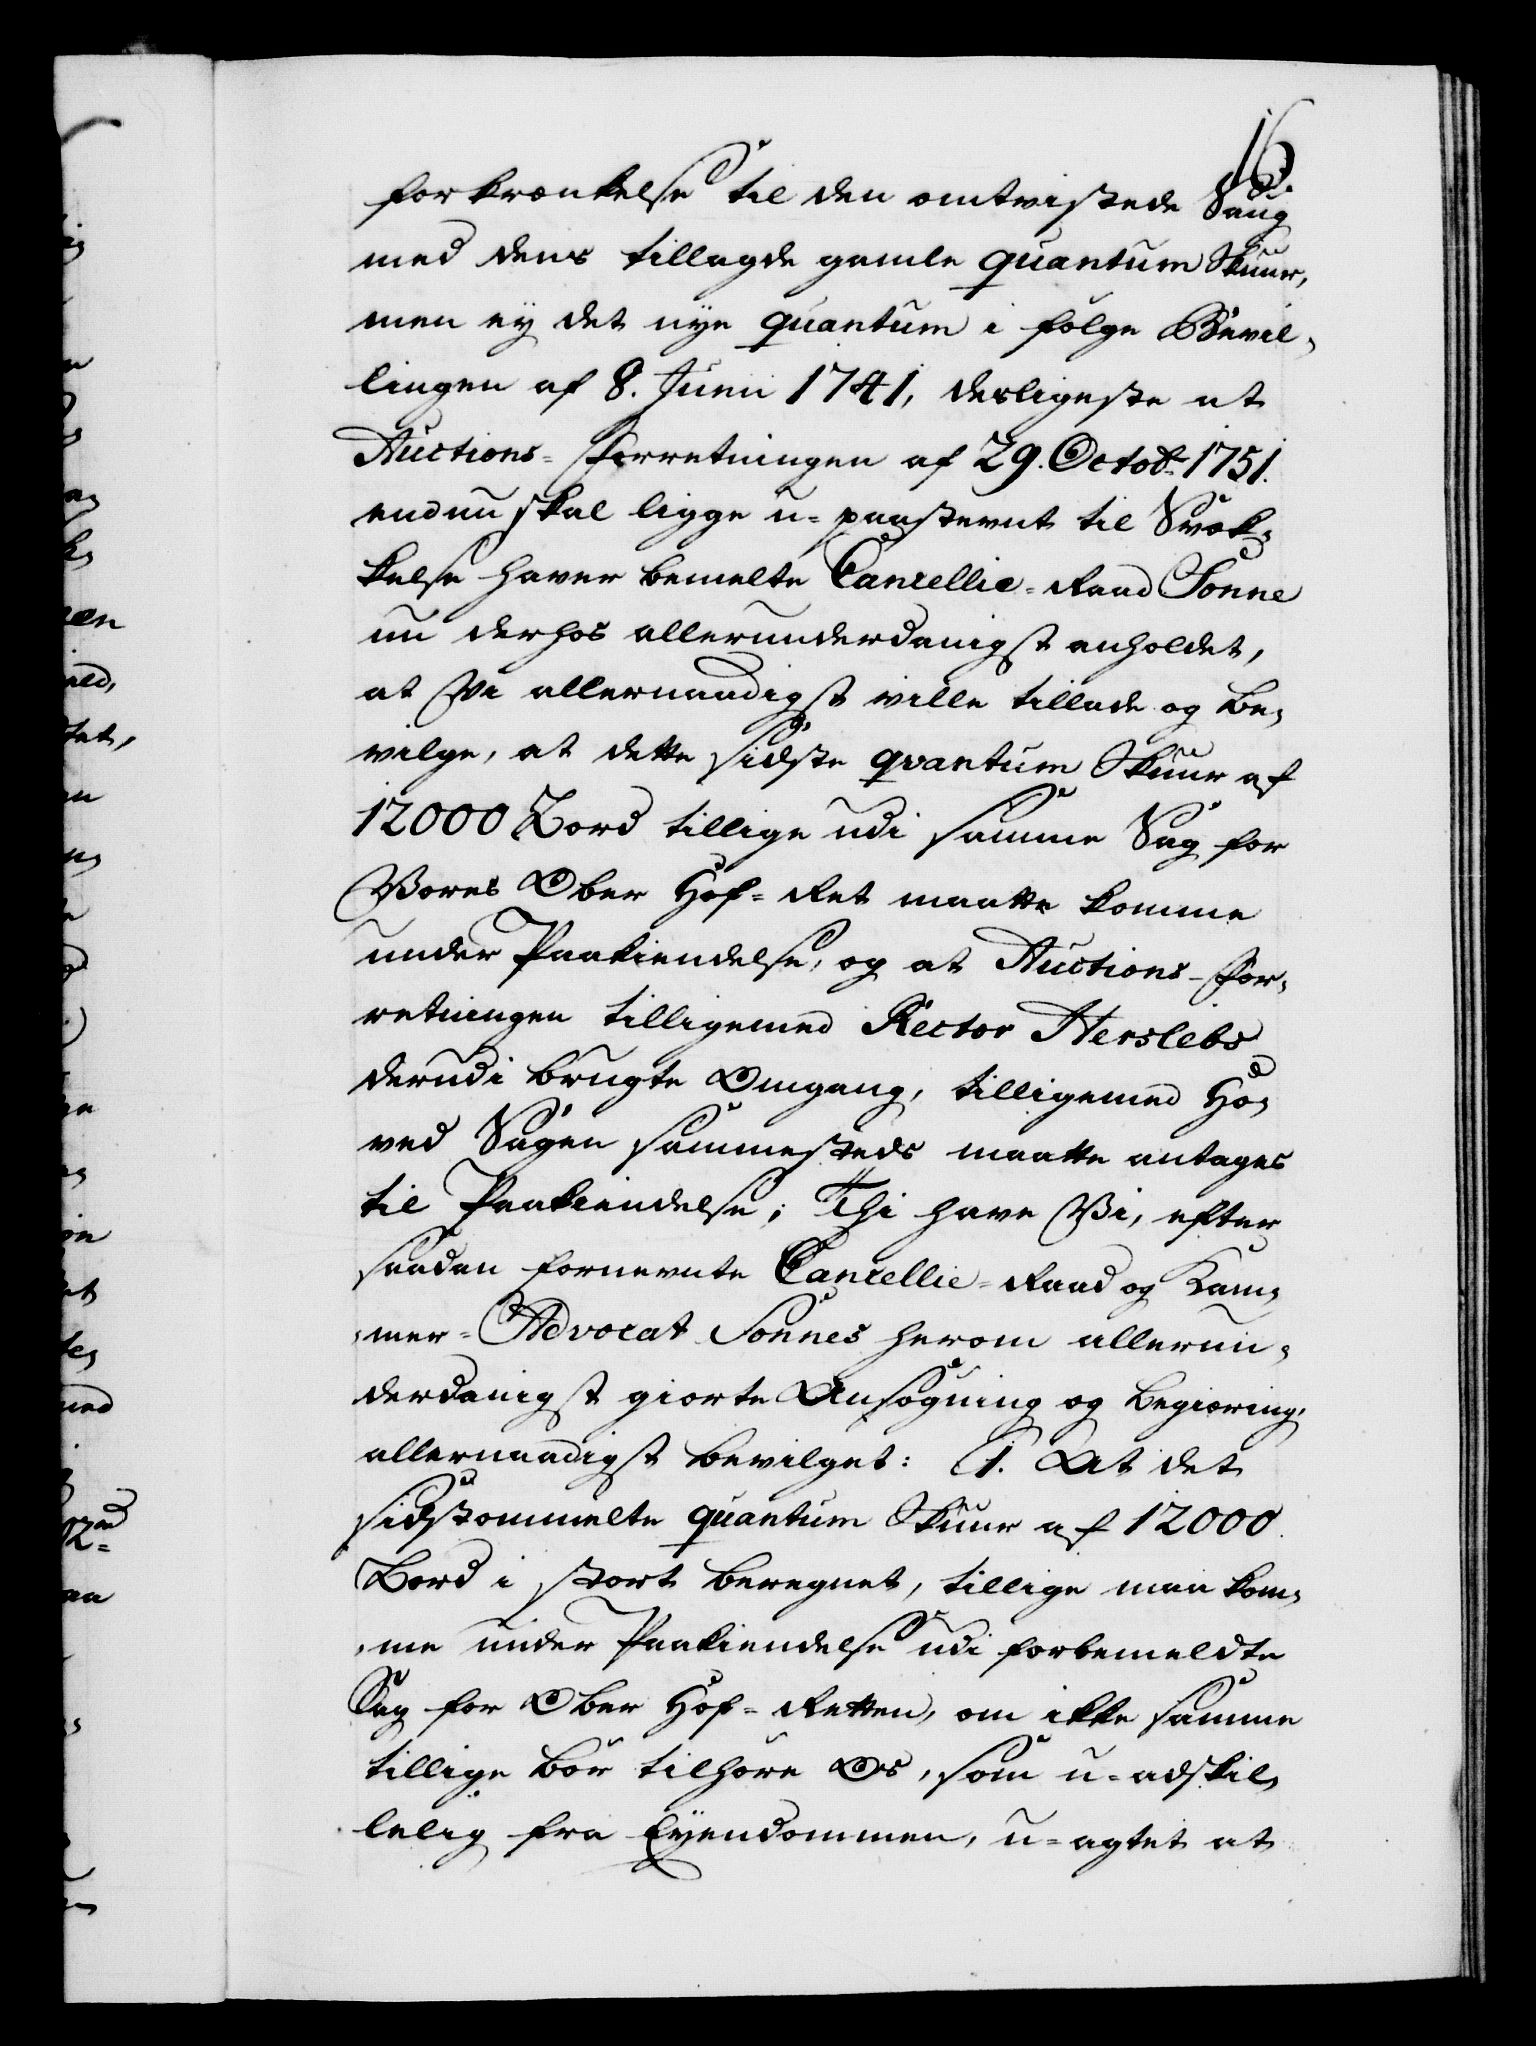 16.
forkrænkelse til den omtvistede Saug
med dens tillagde gamle quantum Skuur,
men ey det nye quantum i følge Bevil-
lingen af 8. Junii 1741, desligeste at
Auctions-Forretningen af 29. Octob. 1751.
endnu skal ligge u-paastevnt til Svæk-
kelse haver bemelte Cancellie-Raad Sonne
nu derhos allerunderdanigst anholdet,
at Vi allernaadigst ville tillade og be-
vilge, at dette sidste qvantum Skuur af
12000 Bord tillige udi samme Sag for
Vores Ober Hof-Ret maatte komme
under Paakiendelse, og at Auctions-For-
retningen tilligemed Rector Herslebs
derudi brugte Omgang, tilligemed Ho-
ved Sagen sammesteds maatte antages
til Paakiendelse; Thi have Vi, efter
saadan fornevnte Cancellie-Raad og Kam-
mer-Advocat Sonnes herom allerun-
derdanigst giorte Ansøgning og begiæring,
allernaadigst bevilget: 1. At det
sidstommelte quantum Skuur af 12000.
Bord i stort beregnet, tillige maa kom-
me under Paakiendelse udi forbemeldte
Sag for Ober Hof-Retten, om ikke samme
tillige bør tilhøre Os, som u-adskil-
lelig fra Eyendommen, u-agtet at